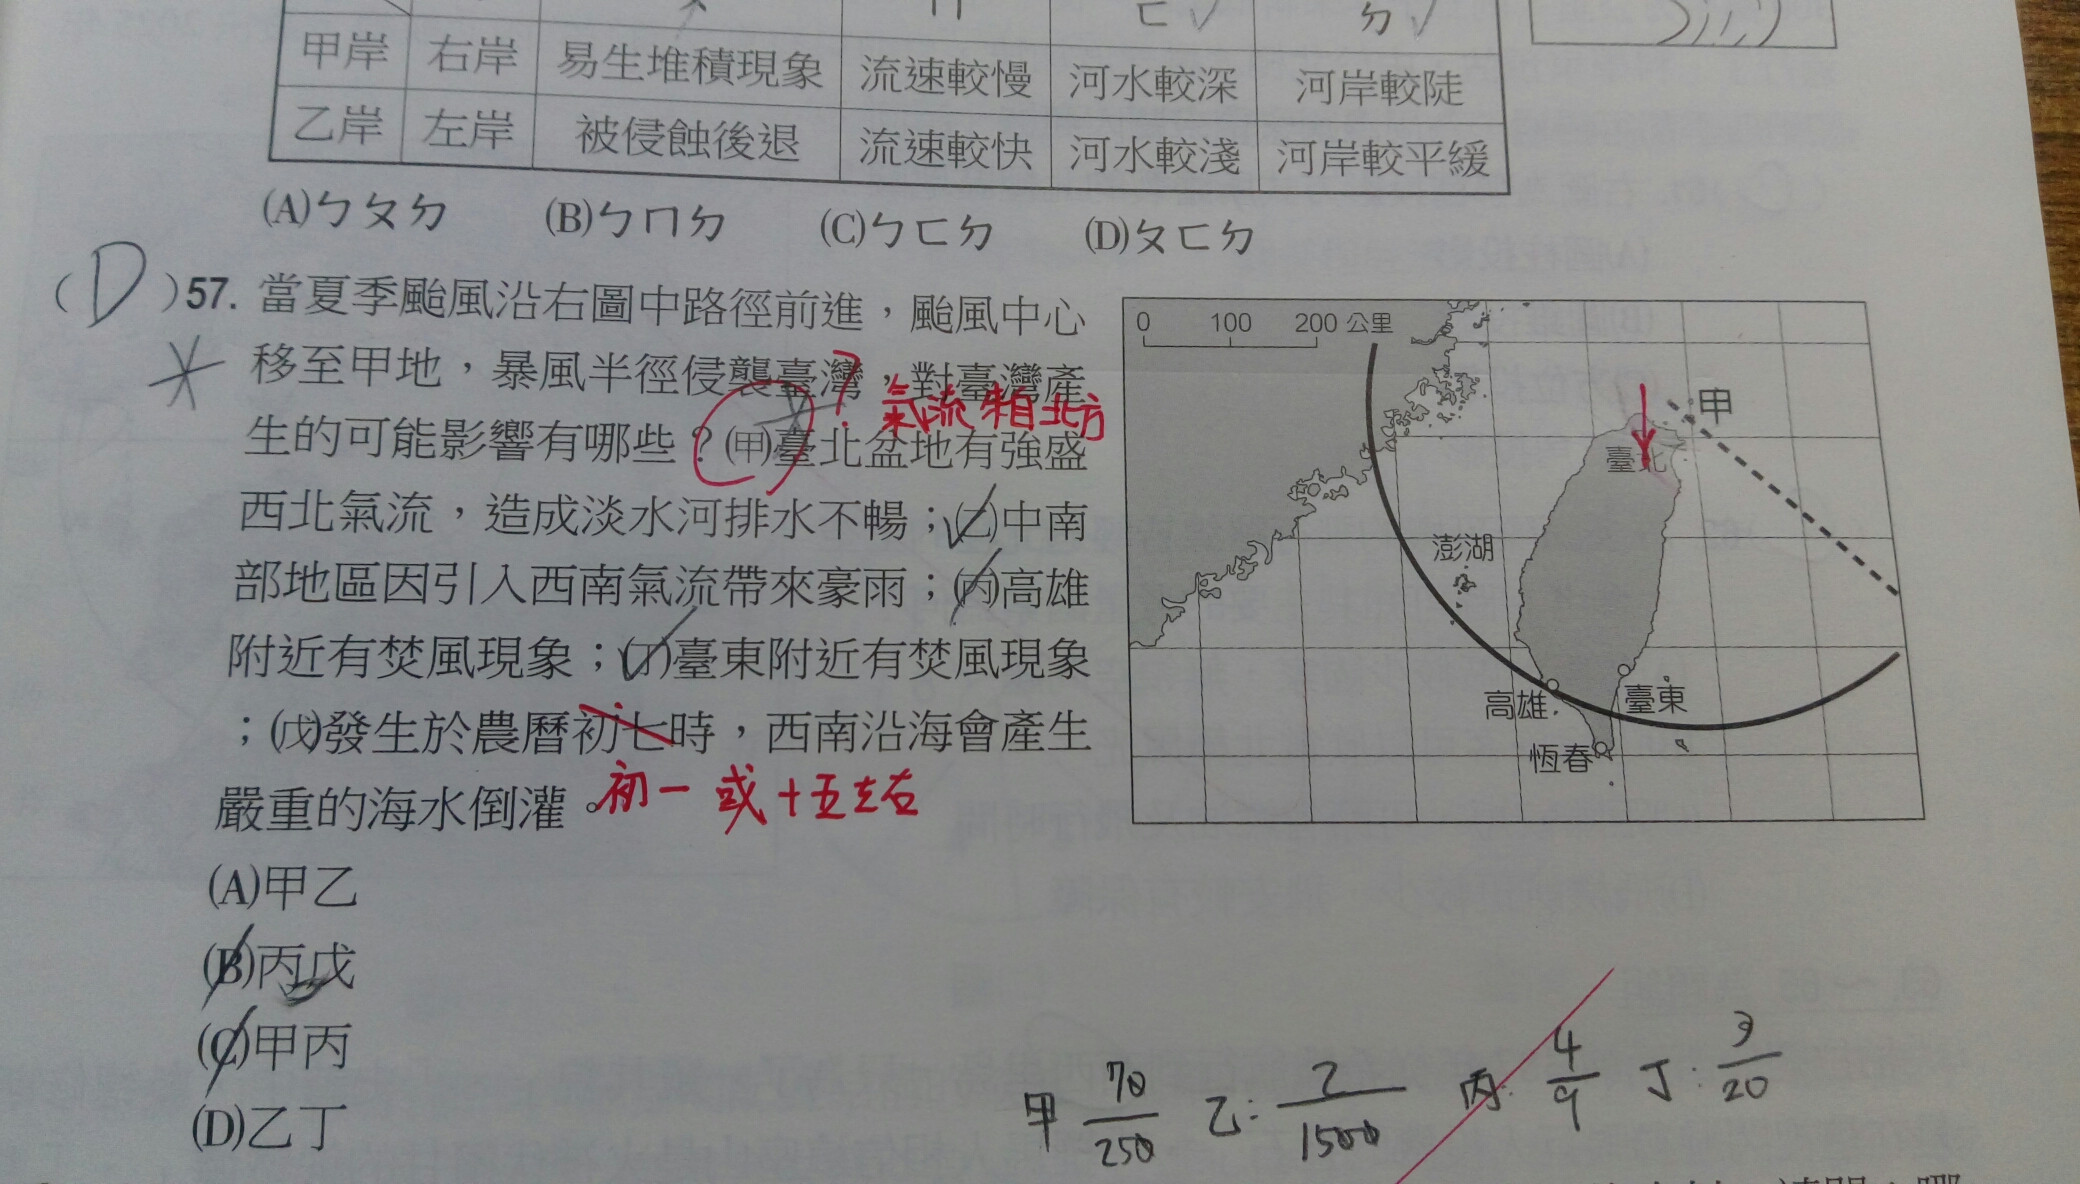 ㄇ ㄈ✓ ㄉ✓
甲岸 右岸 易生堆積現象 流速較慢 河水較深 河岸較陡
乙岸 左岸 被侵蝕後退 流速較快 河水較淺 河岸較平緩
(A)ㄅㄆㄉ (B)ㄅㄇㄉ (C)ㄅㄈㄉ (D)ㄆㄈㄉ
(D)57. 當夏季颱風沿右圖中路徑前進，颱風中心
移至甲地，暴風半徑侵襲臺灣，對臺灣產
生的可能影響有哪些？(甲)臺北盆地有強盛
西北氣流，造成淡水河排水不暢；(乙)中南
部地區因引入西南氣流帶來豪雨；(丙)高雄
附近有焚風現象；(丁)臺東附近有焚風現象
；(戊)發生於農曆初七時，西南沿海會產生
嚴重的海水倒灌。
?
北方
初一 或十五左右
(A)甲乙
(B)丙戊
(C)甲丙
(D)乙丁
0 100 200 公里
甲
臺北
澎湖
高雄
臺東
恆春
甲 70/250 乙: 2/1500 丙: 4/9 丁: 3/20